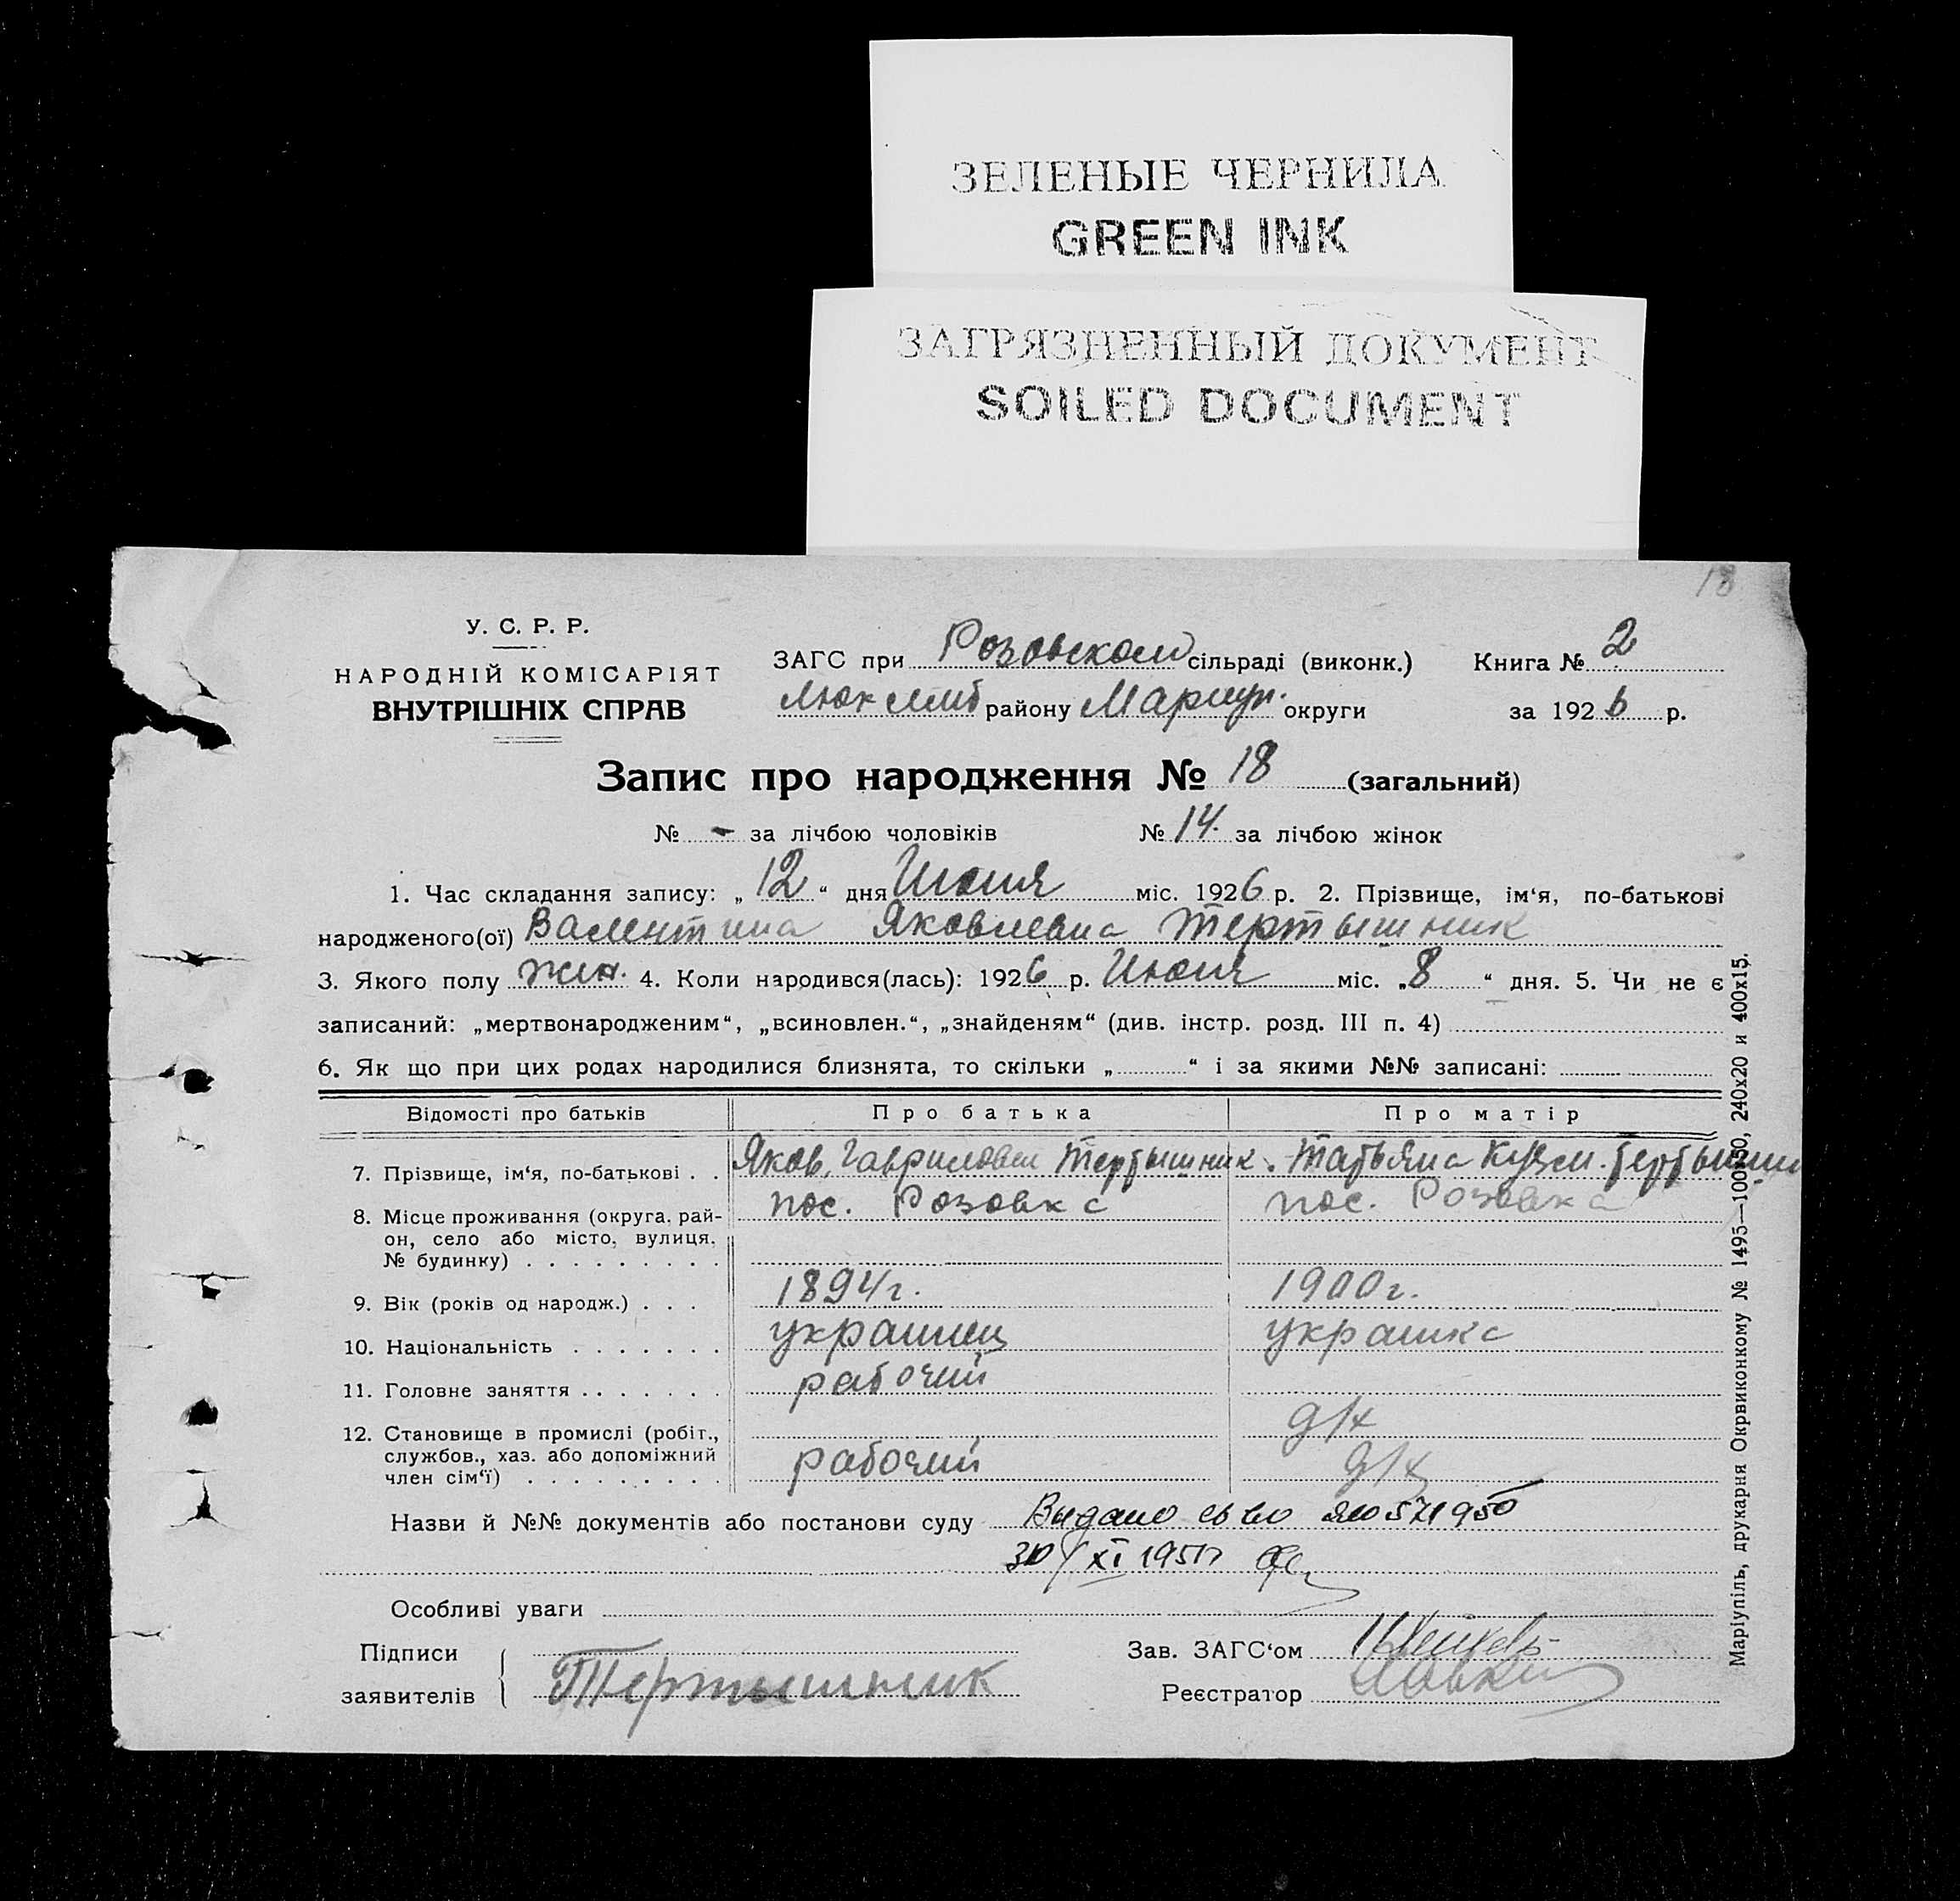 ЗЕЛЕНЫЕ ЧЕРНИЛА
GREEN INK
ЗАГРЯЗНЕННЫЙ ДОКУМЕНТ
SOILED DOCUMENT
18
У. С. Р. Р.
НАРОДНІЙ КОМІСАРІЯТ
ВНУТРІШНІХ СПРАВ
ЗАГС при Розовском сільраді (виконк.) Книга № 2
району Мариуп. округи за 1926 р.
Запис про народження № 18 (загальний)
№ - за лічбою чоловіків № 14. за лічбою жінок
1. Час складання запису: „ 12 “ дня Июня міс. 1926 р. 2. Прізвище, ім‘я, по-батькові
народженого(ої) Валентина Яковлевна Тертышник
3. Якого полу жен. 4. Коли народився(лась): 1926 р. Июня міс. „8 “ дня. 5. Чи не є
записаний: „мертвонародженим“, „всиновлен.“, „знайденям“ (див. інстр. розд. III п. 4)
6. Як що при цих родах народилися близнята, то скільки „ “ і за якими №№ записані:
Відомості про батьків Про батька Про матір
7. Прізвище, ім‘я, по-батькові . . Яков Гаврилович Тертышник. Татьяна Кузьм. Тертышник
8. Місце проживання (округа, рай- пос. Розовка пос. Розовка
он, село або місто, вулиця,
№ будинку) . . . . . . . . .
9. Вік (років од народж.) . . . 1894г. 1900г.
10. Національність . . . . . . . украинец украинка
11. Головне заняття . . . . . . . рабочий
12. Становище в промислі (робіт., д/х
службов., хаз. або допоміжний рабочий д/х
член сім‘ї) . . . . . . . . .
Назви й №№ документів або постанови суду Видано св во ЯЮ 571950
30/XI 1951г
Особливі уваги
Підписи
заявителів Тертышник
Зав. ЗАГС‘ом
Реєстратор
Маріупіль, друкарня Окрвиконкому № 1495—100х50, 240х20 и 400х15.